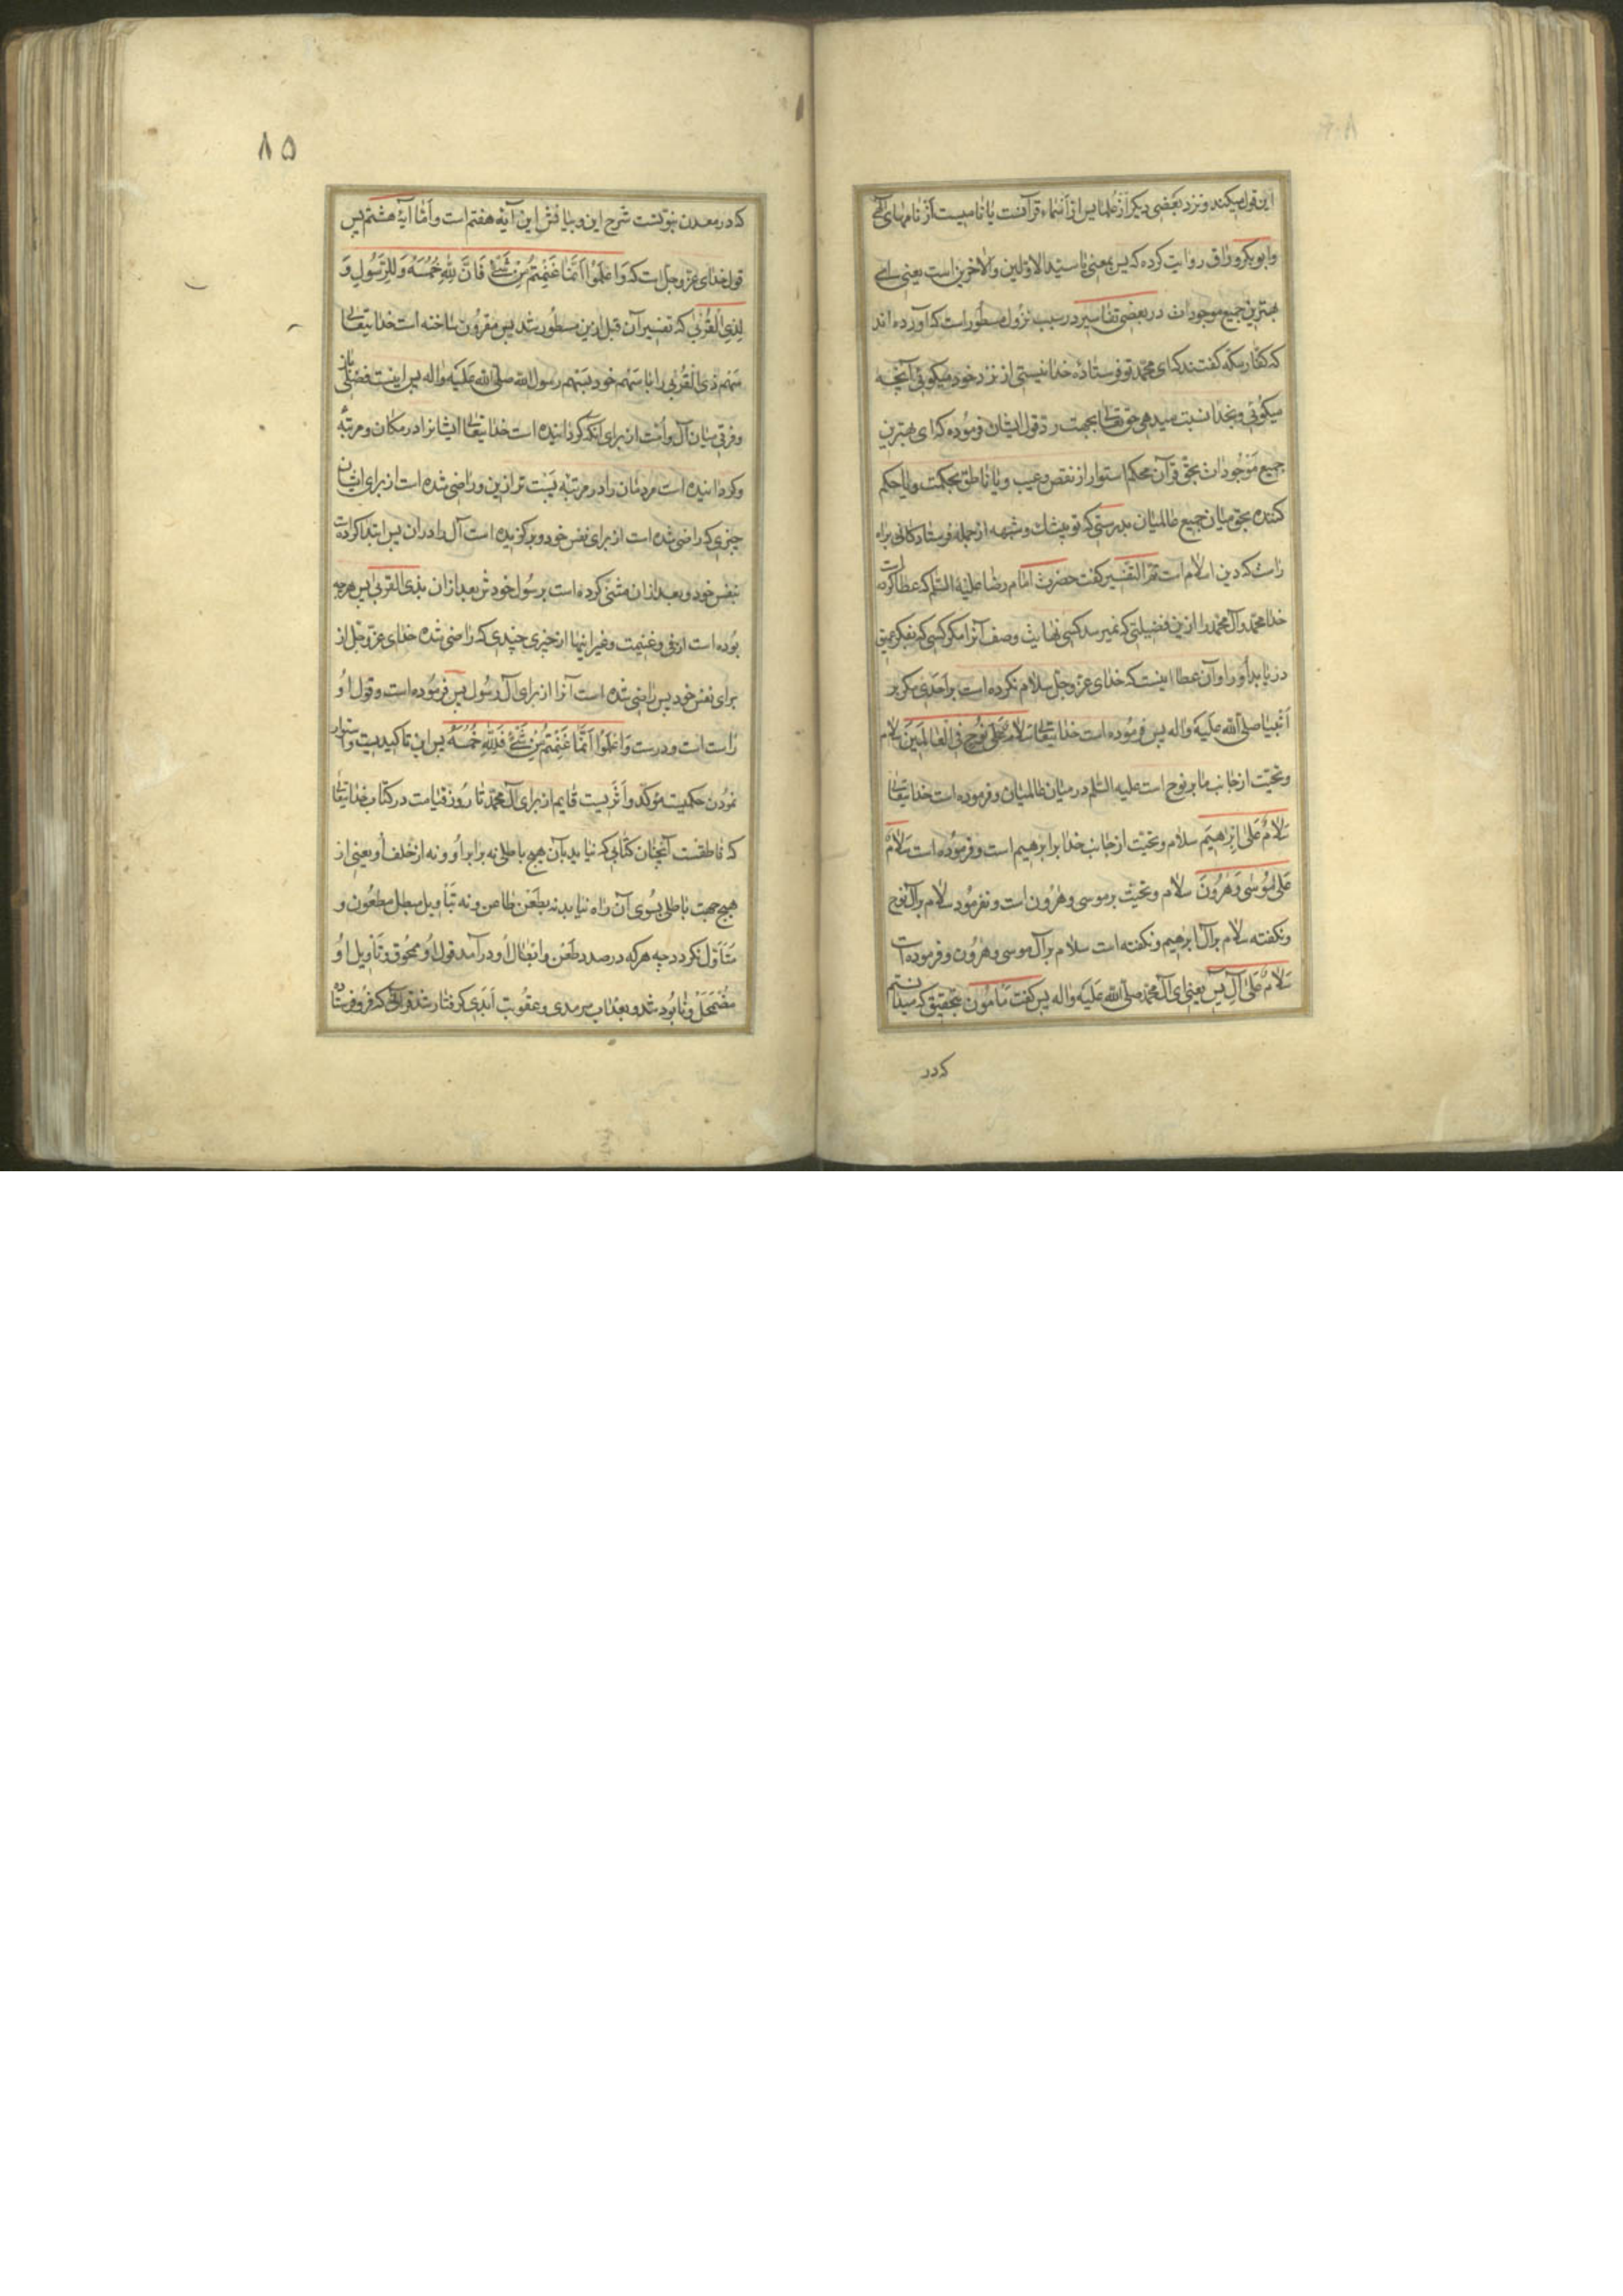 این قول میکنند و نزد بعضی دیکر از علما یس از اسماء قرآنست یا نامیست از نامهای الهی
و ابو بکر وراق روایت کرده که یس بمعنی یا سید الاولین والآخرین است یعنی ای
بهترین جمیع موجودات در بعضی تفاسیر در سبب نزول مسطور است که آورده اند
که کفار مکه کفتند که ای محمد تو فرستاده خدا نیستی از نزد خود میکوئی آنچه
میکوئی و بخدا نسبت میدهی حق تعالی بجهت رد قول ایشان فرموده که ای بهترین
جمیع موجودات بحق قرآن محکم استوار از نقص و عیب و یا ناطق بحکمت و یا حکم
کننده بحق میان جمیع عالمیان بدرستی که تو بیشک و شبهه از جمله فرستادکانی براه
راست که دین اسلام است تم التفسیر کفت حضرت امام رضا علیه السلم که عطا کرده است
خدا محمد و آل محمد را از این فضیلتی که نمیرسد کسی نهایت وصف آنرا مکر کسی که بفکر عمیق
دریابد او را و آن عطا اینست که خدای عز وجل سلام نکرده است بر احدی مکر بر
انبیا صلی الله علیه واله پس فرموده است خدایتعالی سلام علی نوح فی العالمین سلام
و تحیت از جانب ما بر نوح است علیه السلم در میان عالمیان و فرموده است خدایتعالی
سلام علی ابرهیم سلام و تحیت از جانب خدا بر ابرهیم است و فرموده است سلام
علی موسی و هرون سلام و تحیت بر موسی و هرون است و نفرمود سلام بر آل نوح
و نکفته سلام بر آل ابرهیم و نکفته است سلام بر آل موسی و هرون و فرموده است
سلام علی آل یس یعنی ای آل محمد صلی الله علیه واله پس کفت مامون بتحقیق که میدانستم
که در
٨٥
که در معدن نبوتست شرح این و بیانش این آیه هفتم است و اما آیه هشتم پس
قول خدای عز وجل است که واعلموا انما غنمتم من شیء فان لله خمسه وللرسول و
لذی القربی که تفسیر آن قبل ازین مسطور شد پس مقرون ساخته است خدایتعالی
سهم ذی القربی را با سهم خود بسهم رسول الله صلی الله علیه واله پس اینست فضلی باز
و فرقی میان آل و امت از برای آنکه کردانیده است خدایتعالی ایشانرا در مکان و مرتبه
و کردانیده است مردمان را در مرتبه پست تر ازین و راضی شده است از برای ایشان
چیزی که راضی شده است از برای نفس خود و برکزیده است آل را در آن پس ابتدا کرده است
بنفس خود و بعد از آن مثنی کرده است برسول خودش بعد از آن بذی القربی پس هرچه
بوده است از فی و غنیمت و غیر اینها از چیزی چندی که راضی شده خدای عز وجل از
برای نفس خود پس راضی شده است آنرا از برای آل رسول پس فرموده است و قول او
راست است و درست واعلموا انما غنمتم من شیء فلله خمسه پس این تاکیدیست و استوار
نمودن حکمیست مؤکد و اثریست قایم از برای آل محمد تا روز قیامت در کتاب خدایتعالی
که ناطقست آنچنان کتابی که نیاید بآن هیچ باطلی نه برابر او و نه از خلف او یعنی از
هیچ جهت باطلی بسوی آن راه نیابد نه بطعن طاعن و نه بتأویل مبطل مطعون و
متأول نکردد چه هرکه در صدد طعن و ابطال او درآمد قول او ممحوق و تأویل او
مضمحل و نابود شد و بعذاب سرمدی و عقوبت ابدی کرفتار شد قرآنی که فرو فرستاده